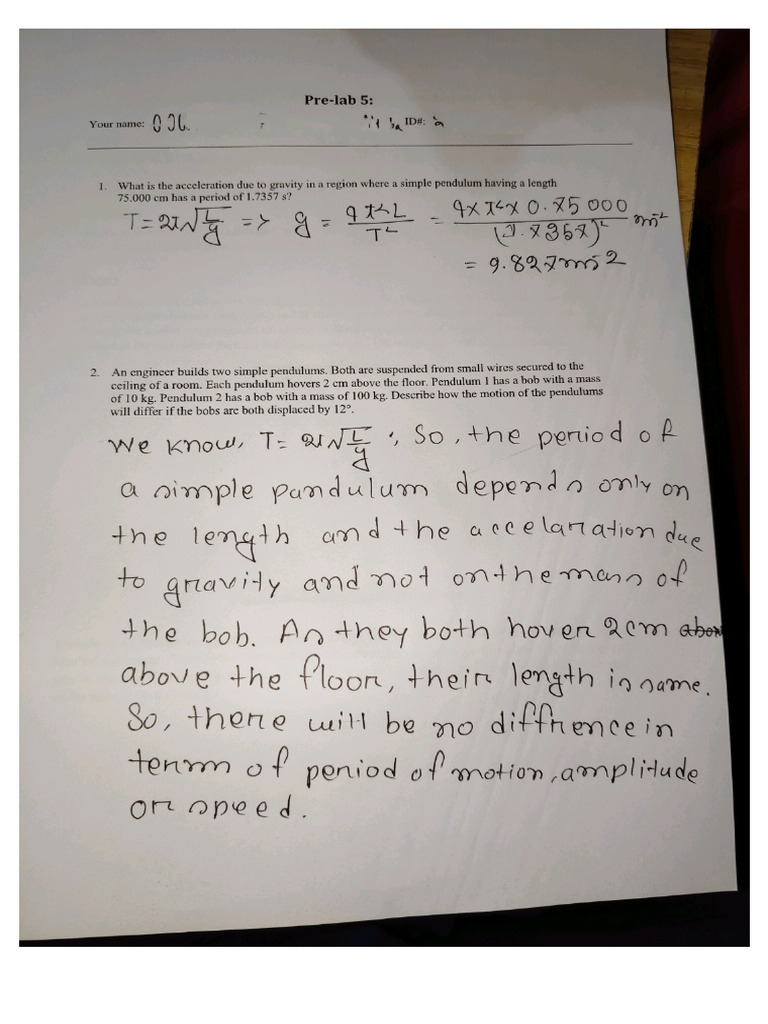 Pre-lab 5:
Your name: ID#:
1. What is the acceleration due to gravity in a region where a simple pendulum having a length
75.000 cm has a period of 1.7357 s?
T = 2π√L/g => g = 4π²L/T² = 4×π²×0.75000/(1.7357)² ms⁻²
= 9.827ms⁻2
2. An engineer builds two simple pendulums. Both are suspended from small wires secured to the
ceiling of a room. Each pendulum hovers 2 cm above the floor. Pendulum 1 has a bob with a mass
of 10 kg. Pendulum 2 has a bob with a mass of 100 kg. Describe how the motion of the pendulums
will differ if the bobs are both displaced by 12°.
We know, T= 2π√L/g ; So, the period of
a simple pandulum depends only on
the length and the accelaration due
to gravity and not on the mass of
the bob. As they both hover 2cm
above the floor, their length is same.
So, there will be no diffrence in
term of period of motion, amplitude
or speed.